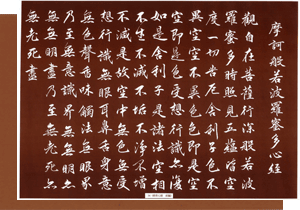 摩訶般若波羅蜜多心經
觀自在菩薩行深般若波
羅蜜多時照見五蘊皆空
度一切苦厄舍利子色不
異空空不異色色即是空
空即是色受想行識亦復
如是舍利子是諸法空相
不生不滅不垢不淨不增
不減是故空中無色無受
想行識無眼耳鼻舌身意
無色聲香味觸法無眼界
乃至無意識界無無明亦
無無明盡乃至無老死亦
無老死盡